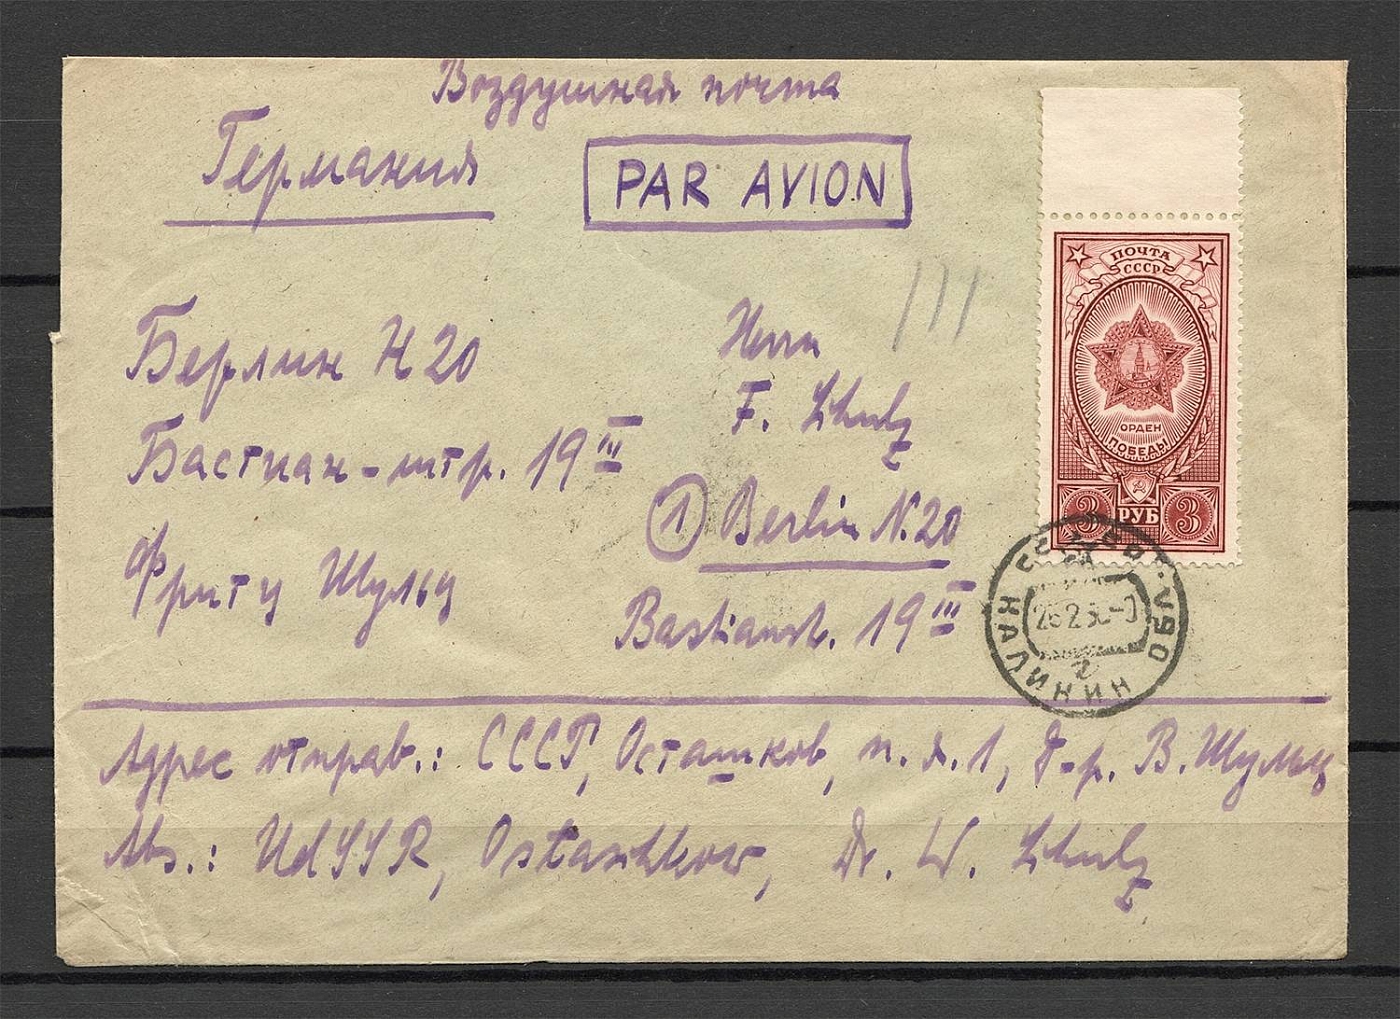 Воздушная почта
Германия
PAR AVION
Берлин Н 20
Бастиан-штр. 19 III
Фритц Шульц
Herrn
F. Schulz
① Berlin N. 20
Bastianstr. 19 III
ПОЧТА
СССР
ОРДЕН
ПОБЕДЫ
3 РУБ 3
КАЛИНИН
ОБЛ.
Адрес отправ.: СССР, Осташков, п. я. 1, Д-р. В. Шульц
Abs.: UdSSR, Ostaschkow, Dr. W. Schulz